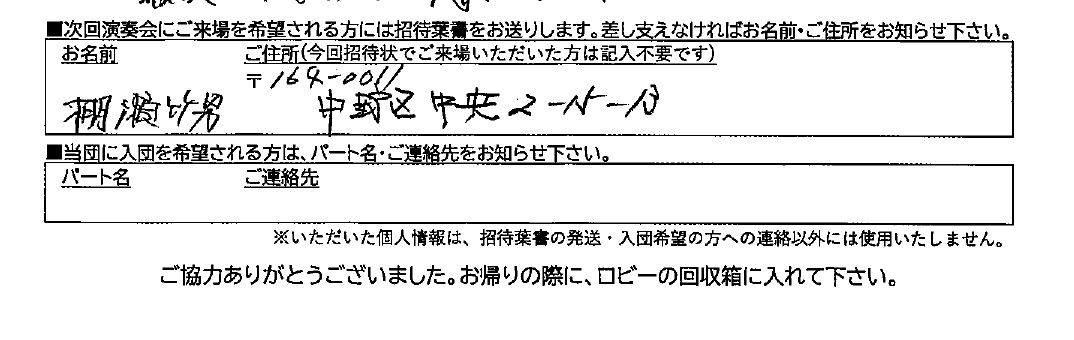 ■次回演奏会にご来場を希望される方には招待葉書をお送りします。差し支えなければお名前・ご住所をお知らせ下さい。
お名前 ご住所(今回招待状でご来場いただいた方は記入不要です)
〒164-0011
中野区中央2-15-13
■当団に入団を希望される方は、パート名・ご連絡先をお知らせ下さい。
パート名 ご連絡先
※いただいた個人情報は、招待葉書の発送・入団希望の方への連絡以外には使用いたしません。
ご協力ありがとうございました。お帰りの際に、ロビーの回収箱に入れて下さい。